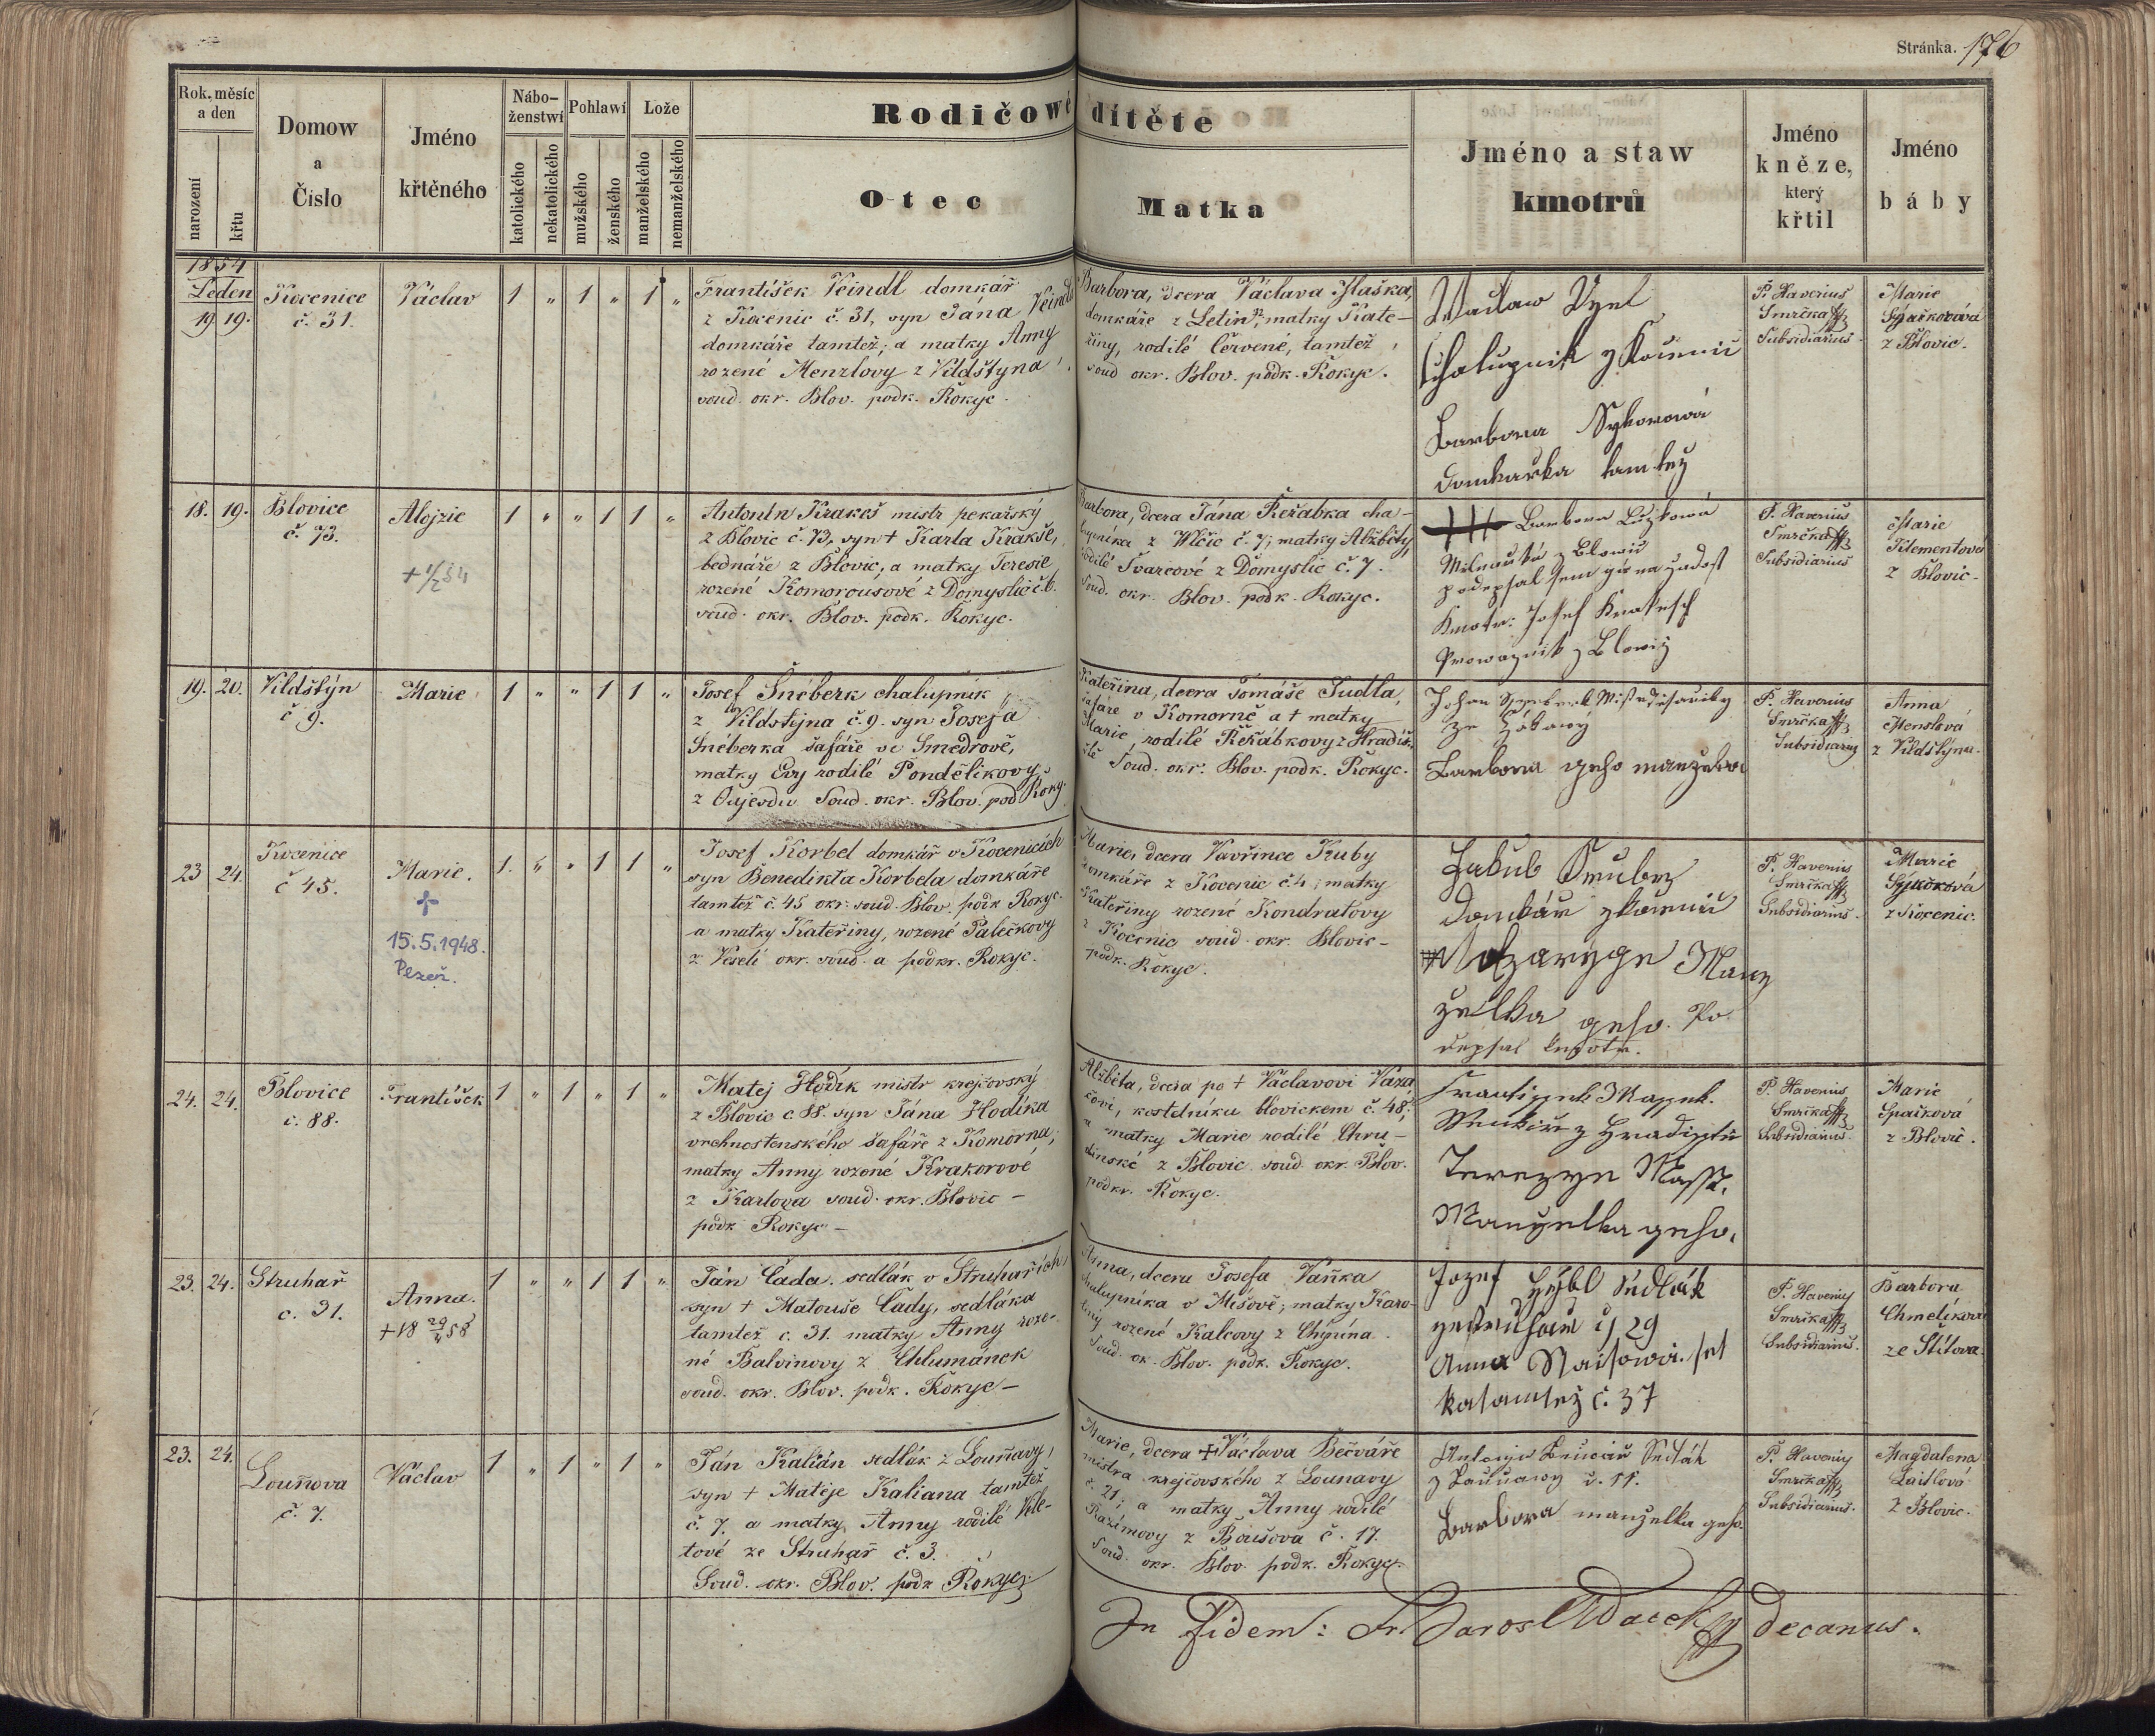 Stránka. 176
Rok, měsíc a den
narození
křtu
Domow a Číslo
Jméno křtěného
Náboženstwí
katolického
nekatolického
Pohlawí
mužského
ženského
Lože
manželského
nemanželského
Rodičowé dítěte
Otec
Matka
Jméno a staw kmotrů
Jméno kněze, který křtil
Jméno báby
1854
Leden
19 19.
Kocenice
č. 31.
Václav
1 " 1 " 1 "
František Veindl domkář
z Kocenic č. 31, syn Jána Veindla
domkáře tamtéž; a matky Anny
rozené Menzlovy z Vildštyna
soud. okr. Blov. podk. Rokyc.
Barbora, dcera Václava Hlaška,
domkáře z Letin, matky Kate-
řiny, rodilé Červené, tamtéž
soud okr. Blov. podk. Rokyc.
Waclaw
Chalupnik z
Barbora Sykorowa
Domkarka tamtez
P. Xaverius
Smrčka
Subsidiarius
Marie
Spačková
z Blovic.
18. 19.
Blovice
č. 73.
Alojzie
1 " " 1 1 "
Antonín Krakeš mistr pekařský
z Blovic č. 73, syn † Karla Krakše,
bednáře z Blovic, a matky Teresie
rozené Komorousové z Domyslic č. 6.
soud. okr. Blov. podk. Rokyc.
Barbora, dcera Jána Řeřábka cha-
lupníka z Wlčic č. 7; matky Alžběty,
rodilé Švarcové z Domyslic č. 7.
Soud. okr. Blov. podk. Rokyc.
Barbora
z Blowic
podepsal sem gi na zadost
Kmotr: Josef Krakesch
Prowaznik z Blowic
P. Xaverius
Smrčka
Subsidiarius
Marie
Klementová
z Blovic.
19. 20.
Vildštýn
č 9.
Marie
1 " " 1 1 "
Josef Šnéberk chalupník
z Vildštýna č. 9. syn Josefa
Šnéberka šafáře ve Smedrově,
matky Evy rodilé Pondělikovy
z Oujezdu Soud. okr. Blov. pod Roky.
Kateřina, dcera Tomáše Judla,
šafáře v Komorně a † matky
Marie rodilé Řeřábkovy z Hradiš-
tě Soud. okr. Blov. podk. Rokyc.
Johan
Barbora geho manzelka
P. Xaverius
Smrčka
Subsidiarius
Anna
Menslová
z Vildštýna.
23 24.
Kocenice
č 45.
Marie.
15.5.1948.
Plzeň.
1. " " 1 1 "
Josef Korbel domkář v Kocenicích
syn Benedikta Korbela domkáře
tamtéž č. 45 okr. soud. Blov. podk Rokyc.
a matky Kateřiny, rozené Palečkovy
z Veselí okr. soud. a podkr. Rokyc.
Marie, dcera Vavřince Kuby
domkáře z Kocenic č. 4; matky
Kateřiny rozené Kondratovy
z Kocenic soud. okr. Blovic-
podk. Rokyc.
Jakub
Domkář
Man
zelka geho. Po
depsal kmotr.
P. Xaverius
Smrčka
Subsidiarius.
Marie
Sýkorková
z Kocenic.
24. 24.
Blovice
č. 88.
František
1 " 1 " 1 "
Matěj Hodík mistr krejčovský
z Blovic č 88. syn Jána Hodíka
vrchnostenského šafáře z Komorna;
matky Anny rozené Krakorové
z Karlova soud. okr. Blovic –
podk Rokyc –
Alžběta, dcera po † Václavovi Váza-
kovi, kostelníku blovickém č. 48;
a matky Marie rodilé Chru-
dinské z Blovic soud. okr. Blov.
podkr. Rokyc.
z Hradisstie
Terezye
Manzelka geho.
P. Xaverius
Smrčka
Subsidiarius.
Marie
Spačková
z Blovic.
23. 24.
Struhař
č. 31.
Anna.
1 " " 1 1 "
Ján Čada. sedlák v Struhařích,
syn † Matouše Čady, sedláka
tamtéž č. 31. matky Anny roze-
né Balvinovy z Chlumánek
soud. okr. Blov. podk. Rokyc –
Anna, dcera Josefa Vaňka
chalupníka v Mišově; matky Karo-
liny rozené Kalcovy z Chynína.
Soud. ok. Blov. podk. Rokyc.
Jozef Hýbl Sedlák
29
Anna
č. 37
P. Xaveriy
Smrčka
Subsidiarius.
Barbora
Chmelíková
ze Štítova
23. 24.
Louňova
č. 7.
Václav
1 " 1 " 1 "
Ján Kalián sedlák z Louňavy,
syn † Matěje Kaliana tamtéž
č. 7. a matky Anny rodilé Kile-
tové ze Struhař č. 3.
Soud. okr. Blov. podk Rokyc.
Marie, dcera † Václava Bečváře
mistra krejčovského z Lounavy
č. 21; a matky Anny rodilé
Kazimovy z Boušova č. 17.
Soud. okr. Blov. podk. Rokyc.
Sedlák
č. 11.
Barbora manzelka geho.
P. Xaveriy
Smrčka
Subsidiarius.
Magdalena
Laislová
z Blovic.
In Fidem: Fr. Jarosl Wacek decanus.